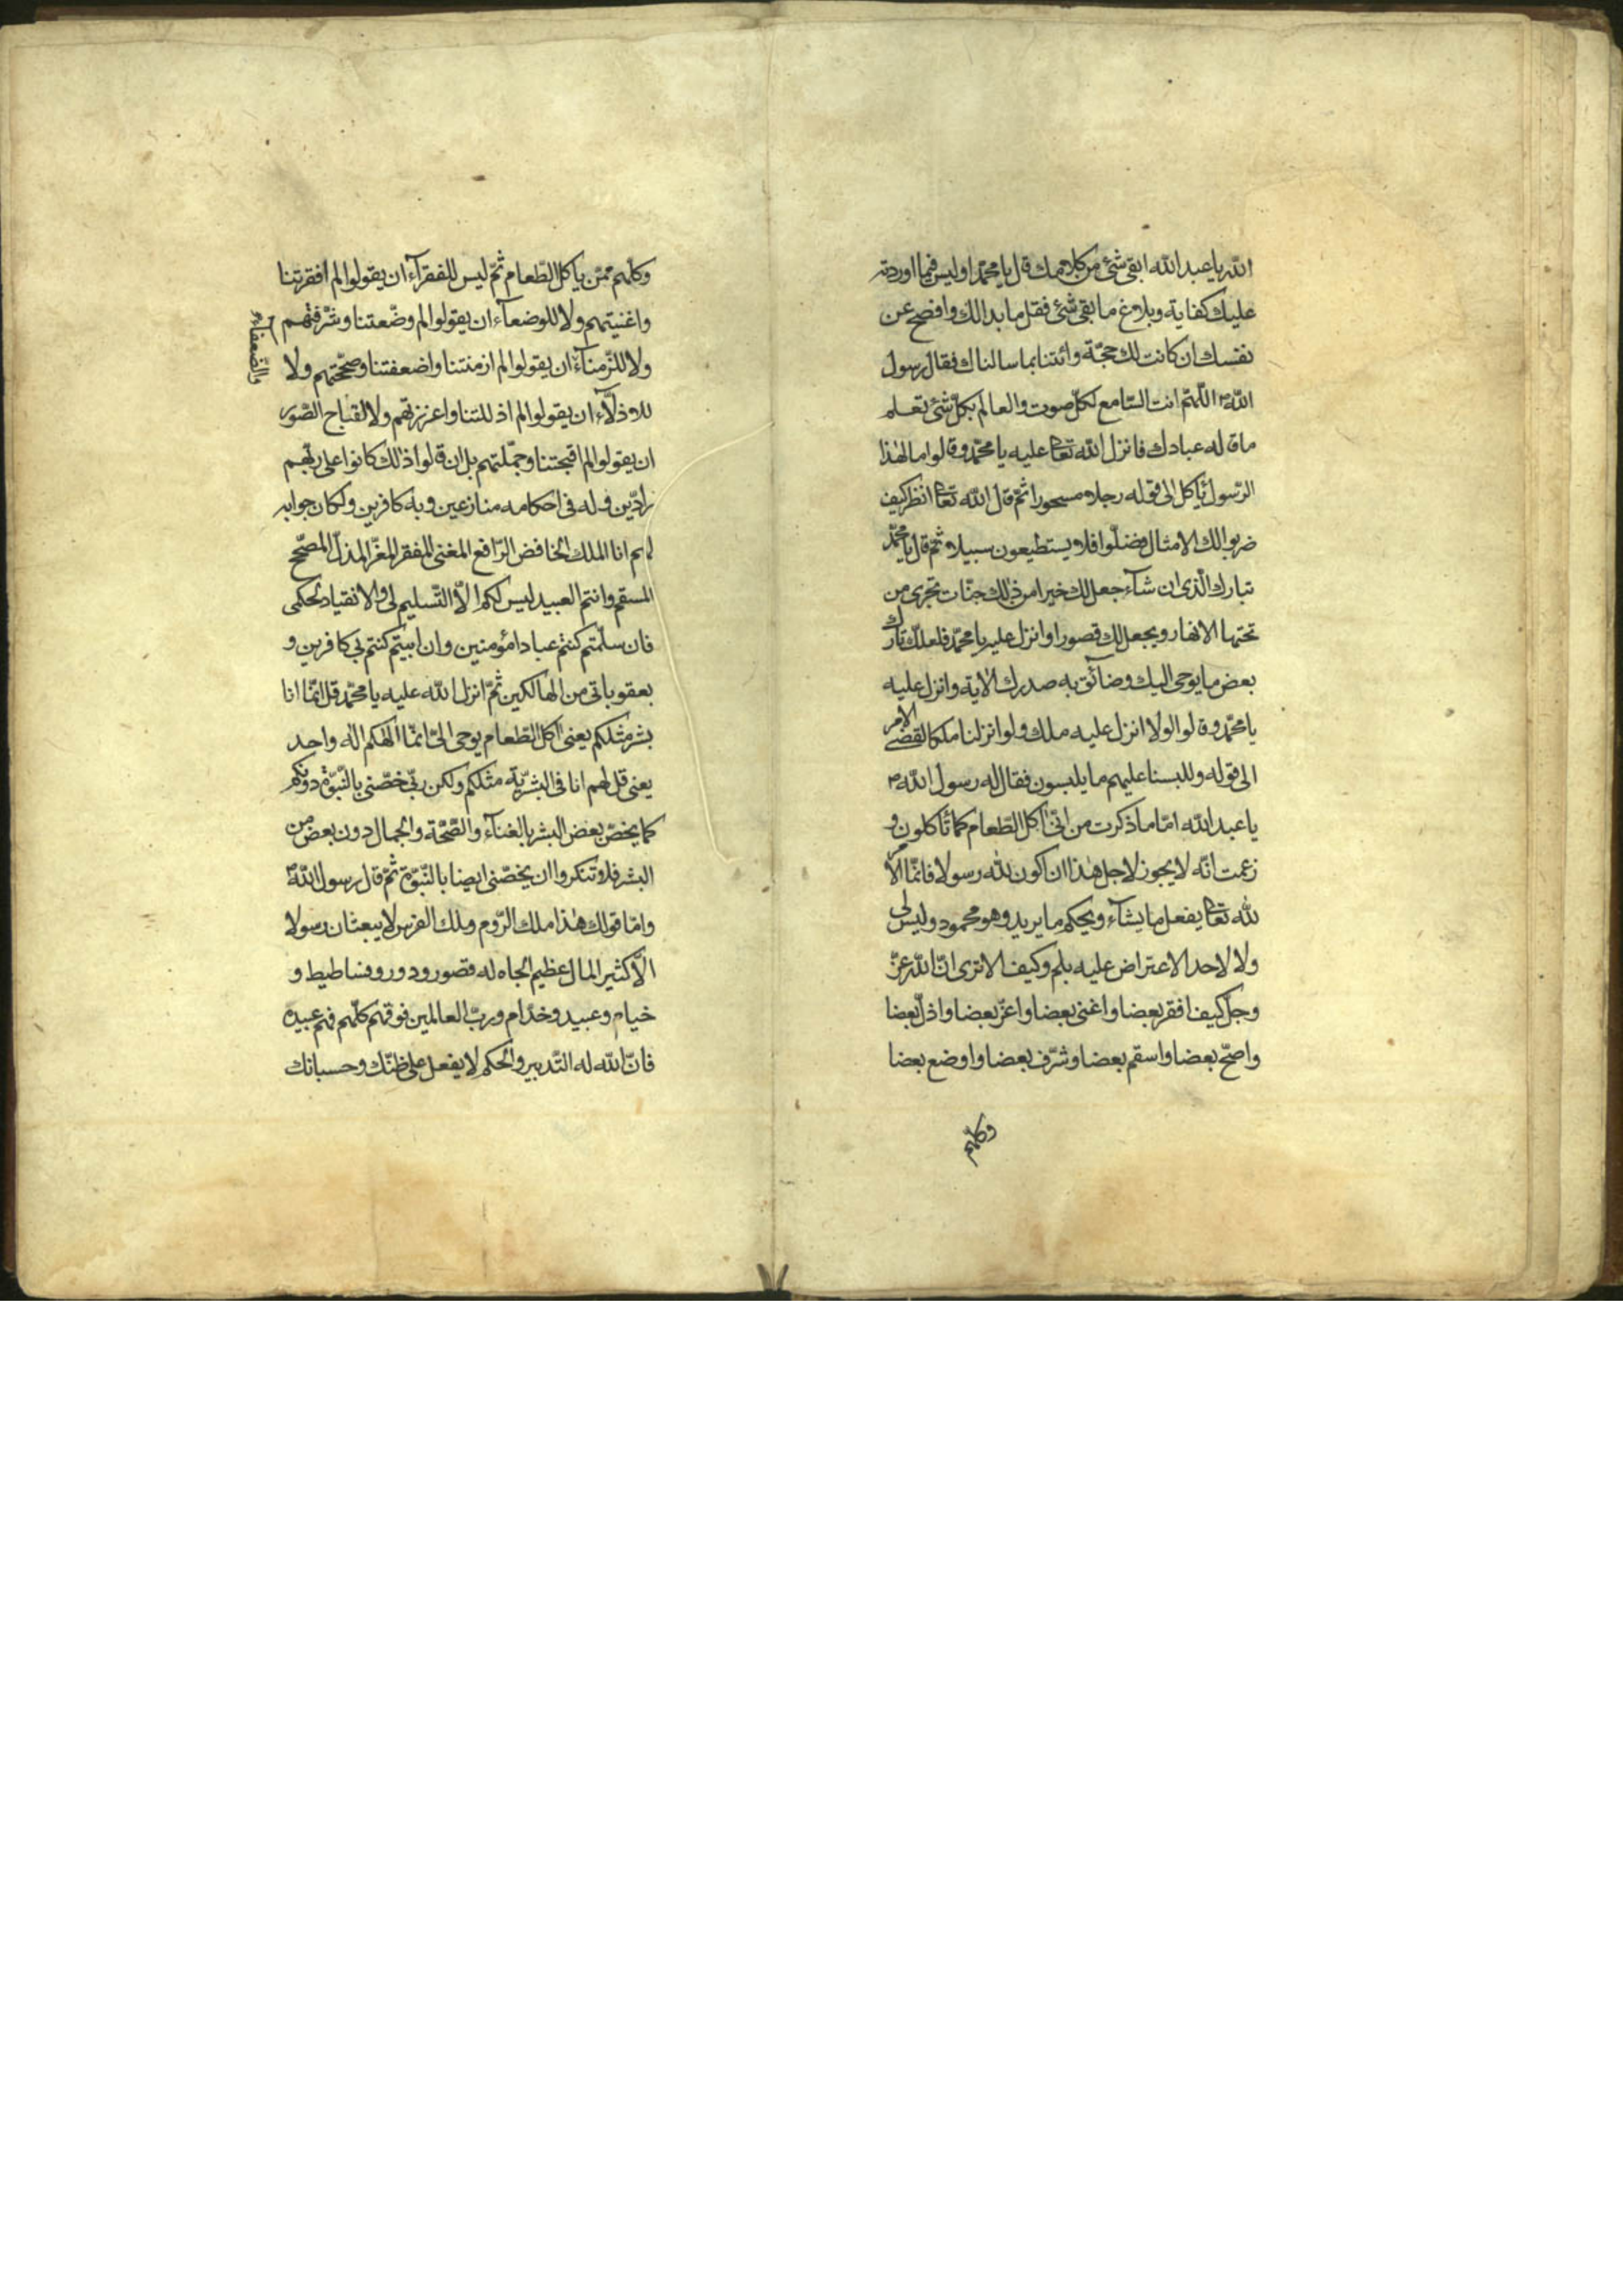 الله يا عبد الله ابقى شئ من كلامك قال يا محمد اوليس فيما اوردته
عليك كفاية وبلاغ ما بقى شئ فقل ما بدالك وافصح عن
نفسك ان كانت لك حجّة وائتنا بما سالناك فقال رسول
الله ص اللّهمّ انت السّامع لكلّ صوت والعالم بكلّ شئ تعلم
ما قاله عبادك فانزل الله تعا عليه يا محمّد وقالوا مال هذا
الرّسول يأكل الى قوله رجلا مسحورا ثمّ قال الله تعا انظر كيف
ضربوا لك الامثال فضلّوا فلا يستطيعون سبيلا ثمّ قال يا محمّد
تبارك الّذى ان شآء جعل لك خيرا من ذلك جنّات تجرى من
تحتها الانهار ويجعل لك قصورا وانزل عليه يا محمّد فلعلّك تارك
بعض ما يوحى اليك وضآئق به صدرك الاية وانزل عليه
يا محمّد وقالوا لولا انزل عليه ملك ولو انزلنا ملكا لقضى الامر
الى قوله وللبسنا عليهم ما يلبسون فقال له رسول الله ص
يا عبد الله امّا ما ذكرت من انّى آكل الطّعام كما تأكلون و
زعمت انّه لا يجوز لاجل هذا ان اكون لله رسولا فانّما الامر
لله تعا يفعل ما يشآء ويحكم ما يريد وهو محمود وليس لى
ولا لاحد الاعتراض عليه بلم وكيف الا ترى انّ الله عزّ
وجلّ كيف افقر بعضا واغنى بعضا واعزّ بعضا واذلّ بعضا
واصحّ بعضا واسقم بعضا وشرّف بعضا واوضع بعضا
وكلّهم
وكلّهم ممّن يأكل الطّعام ثمّ ليس للفقرآء ان يقولوا لم افقرتنا
واغنيتهم ولا للوضعآء ان يقولوا لم وضعتنا وشرّفتهم
ولا للزّمنآء ان يقولوا لم ازمنتنا واضعفتنا وصحّحتهم ولا
والضّعفاء
للاذلّآء ان يقولوا لم اذللتنا واعززتهم ولا لقباح الصّور
ان يقولوا لم اقبحتنا وجمّلتهم بل ان قالوا ذلك كانوا على ربّهم
رادّين وله فى احكامه منازعين وبه كافرين ولكان جوابه
لهم انا الملك الخافض الرّافع المغنى المفقر المعزّ المذلّ المصحّح
المسقم وانتم العبيد ليس لكم الّا التّسليم لى والانقياد لحكمى
فان سلّمتم كنتم عبادا مؤمنين وان ابيتم كنتم بى كافرين و
بعقوباتى من الهالكين ثمّ انزل الله عليه يا محمّد قل انّما انا
بشر مثلكم يعنى آكل الطّعام يوحى الىّ انّما الهكم اله واحد
يعنى قل لهم انا فى البشريّة مثلكم ولكن ربّى خصّنى بالنّبوّة دونكم
كما يخصّ بعض البشر بالغنآء والصّحّة والجمال دون بعض من
البشر فلا تنكروا ان يخصّنى ايضا بالنّبوّة ثمّ قال رسول الله ص
وامّا قولك هذا ملك الرّوم وملك الفرس لا يبعثان رسولا
الّا كثير المال عظيم الجاه له قصور ودور وفساطيط و
خيام وعبيد وخدّام وربّ العالمين فوقهم كلّهم فهم عبيده
فانّ الله له التّدبير والحكم لا يفعل على ظنّك وحسبانك